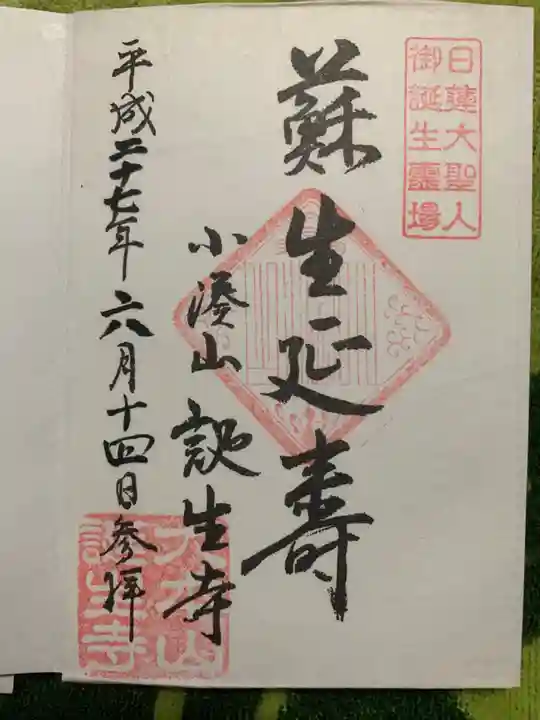 日蓮大聖人
御誕生霊場
蘇生延壽
小湊山 誕生寺
平成二十七年 六月十四日参拝
誕生寺